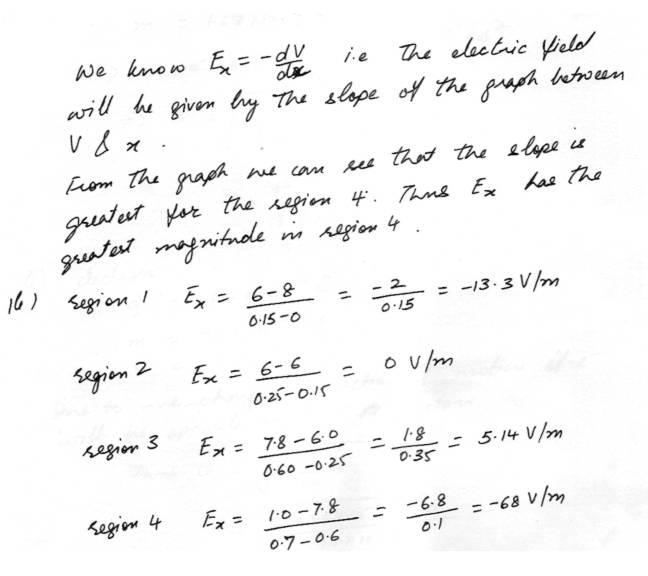 We know Eₓ = -dV/dx i.e The electric field
will be given by The slope of the graph between
V & x .
From The graph we can see that the slope is
greatest for the region 4. Thus Eₓ has the
greatest magnitude in region 4 .
16) region 1 Eₓ = 6-8/0.15-0 = -2/0.15 = -13.3 V/m
region 2 Eₓ = 6-6/0.25-0.15 = 0 V/m
region 3 Eₓ = 7.8-6.0/0.60-0.25 = 1.8/0.35 = 5.14 V/m
region 4 Eₓ = 1.0-7.8/0.7-0.6 = -6.8/0.1 = -68 V/m